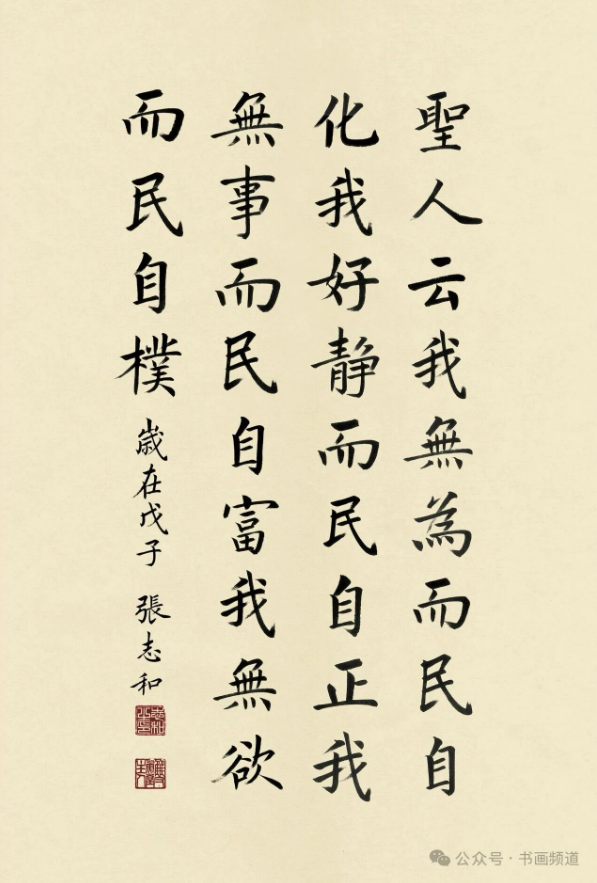 聖人云我無為而民自
化我好静而民自正我
無事而民自富我無欲
而民自樸
歲在戊子 張志和
公众号·书画频道